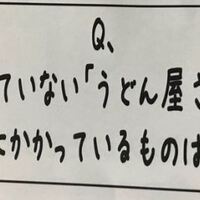 Q、
ていない「うどん屋さ
かかっているものは